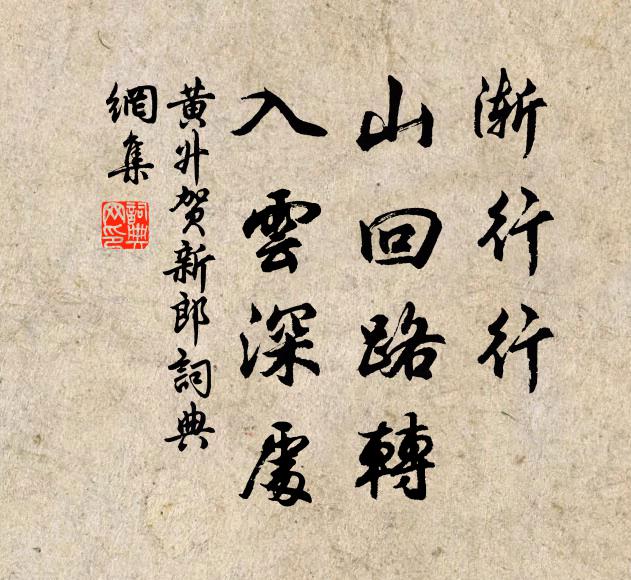 漸行行
山回路轉
入雲深處
黃升賀新郎詞典
網集
詞典
网印